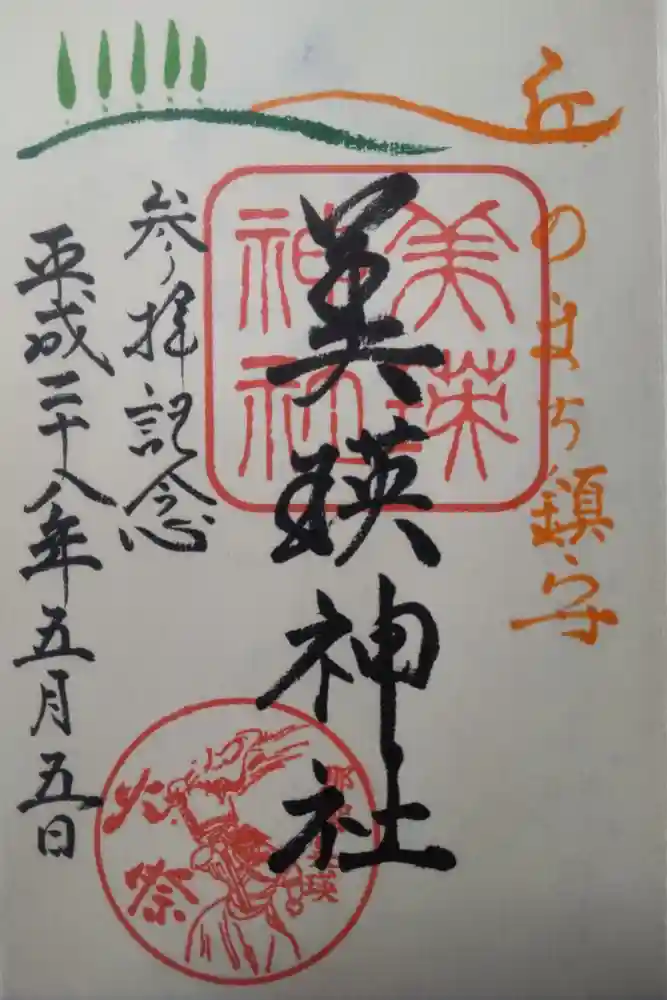 丘のまち鎮守
美瑛神社
美瑛
神社
参拝記念
平成二十八年五月五日
火祭
那智美瑛